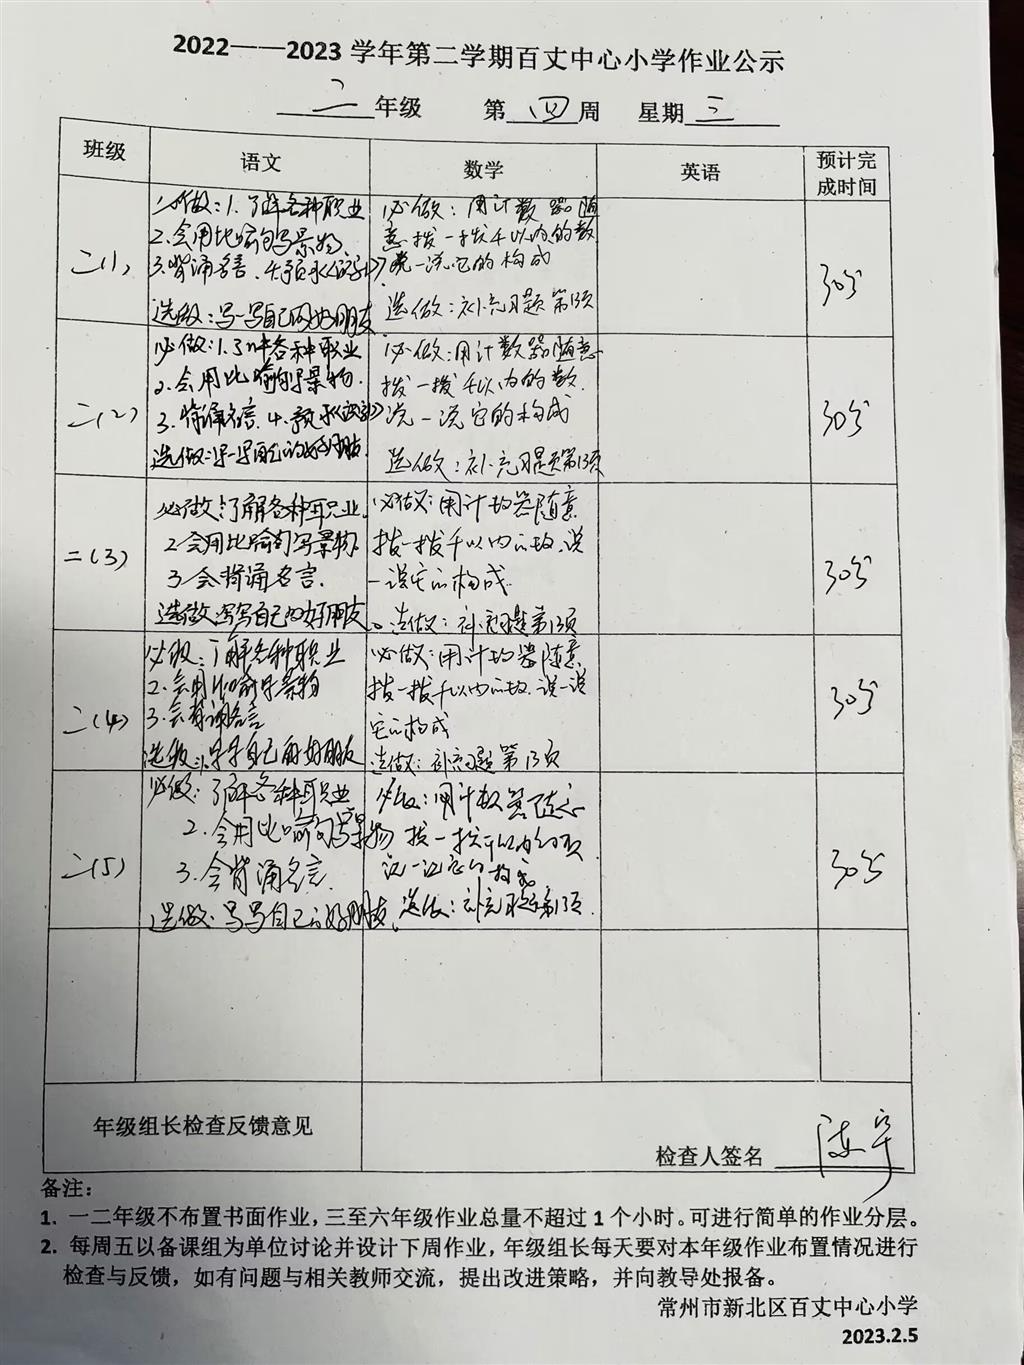 2022——2023 学年第二学期百丈中心小学作业公示
二 年级 第 四 周 星期 三
班级 语文 数学 英语 预计完
成时间
二(1)
必做：1.了解各种职业
2.会用比喻句写景物
3.背诵名言.4.预习
选做：写一写自己的好朋友
必做：用计数器随
意拨一拨千以内的数
说一说它的构成
选做：补充习题第13页
30分
二(2)
必做：1.了解各种职业
2.会用比喻句写景物.
3.背诵名言.4.预习
选做：写一写自己的好朋友
必做：用计数器随意
拨一拨千以内的数.
说一说它的构成
选做：补充习题第13页
30分
二(3)
必做：了解各种职业.
2会用比喻句写景物.
3会背诵名言.
选做：写写自己的好朋友。
必做：用计数器随意
拨一拨千以内的数.说
一说它的构成.
选做：补充习题第13页
30分
二(4)
必做：了解各种职业
2.会用比喻写景物
3.会背诵名言
选做：写写自己的好朋友
必做：用计数器随意
拨一拨千以内的数.说一说
它的构成
选做：补充习题第13页
30分
二(5)
必做：了解各种职业
2.会用比喻句写景物
3.会背诵名言.
选做：写写自己的好朋友。
必做：用计数器随意
拨一拨千以内的
说一说它的构成
选做：补充习题第13页.
30分
年级组长检查反馈意见
检查人签名 陈宇
备注：
1. 一二年级不布置书面作业，三至六年级作业总量不超过 1 个小时。可进行简单的作业分层。
2. 每周五以备课组为单位讨论并设计下周作业，年级组长每天要对本年级作业布置情况进行
检查与反馈，如有问题与相关教师交流，提出改进策略，并向教导处报备。
常州市新北区百丈中心小学
2023.2.5